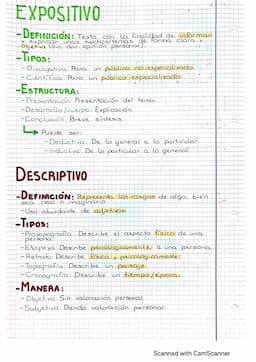 EXPOSITIVO
-DEFINICIÓN: Texto con la finalidad de informar
y explicar unos hechos/temas de forma clara y
objetiva (sin dar opinión personal).
-TIPOS:
-Divulgativa: Para un público no especializado.
-Científica: Para un público especializado.
-ESTRUCTURA:
-Presentación: Presentación del tema.
-Desarrollo/cuerpo: Explicación
-Conclusión: Breve síntesis.
Puede ser:
-Deductiva: De lo general a lo particular.
-Inductiva: De lo particular a lo general.
DESCRIPTIVO
-DEFINICIÓN: Representa los rasgos de algo, bien
sea real o imaginario.
-Uso abundante de adjetivos
-TIPOS:
-Prosopografía: Describe el aspecto físico de una
persona.
-Etopeya: Describe psicológicamente a una persona.
-Retrato: Describe física y psicológicamente.
-Topografía: Describe un paisaje.
-Cronografía: Describe un tiempo/época.
-MANERA:
-Objetiva: Sin valoración personal.
-Subjetiva: Dando valoración personal.
Scanned with CamScanner